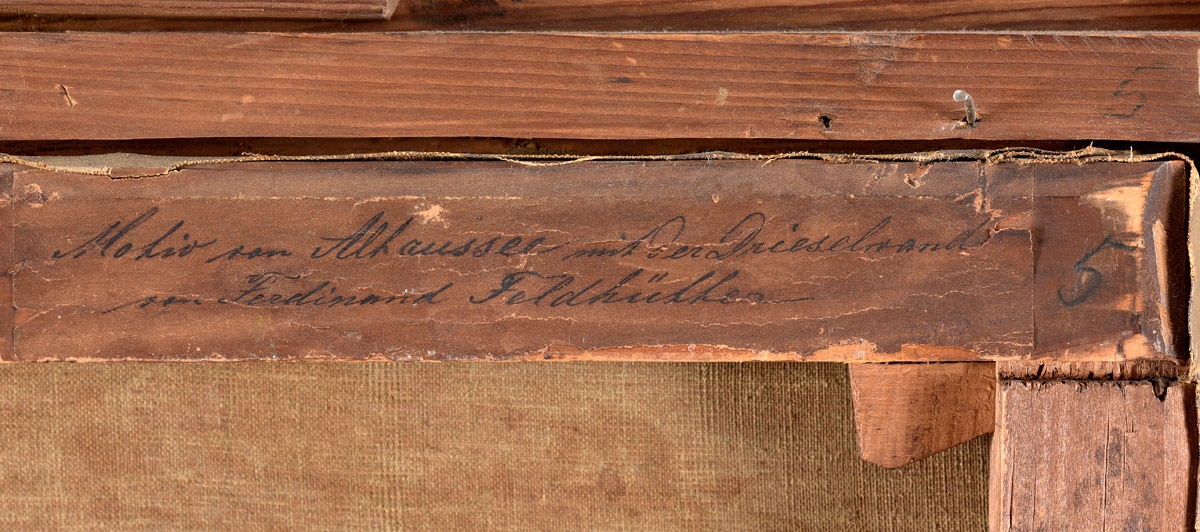 5
Motiv von Altaussee mit der Drieselwand
von Ferdinand Feldhütter
5